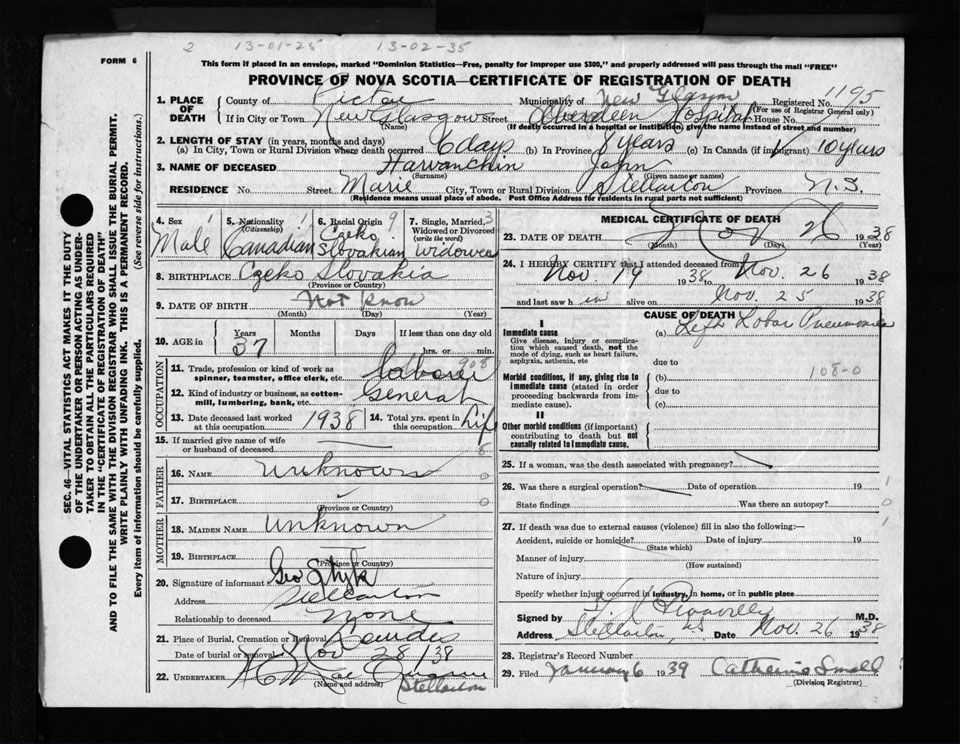 2 13-01-25 13-02-35
FORM 6
This form if placed in an envelope, marked "Dominion Statistics—Free, penalty for improper use $300," and properly addressed will pass through the mail "FREE"
PROVINCE OF NOVA SCOTIA—CERTIFICATE OF REGISTRATION OF DEATH
SEC. 46—VITAL STATISTICS ACT MAKES IT THE DUTY
OF THE UNDERTAKER OR PERSON ACTING AS UNDER-
TAKER TO OBTAIN ALL THE PARTICULARS REQUIRED
IN THE "CERTIFICATE OF REGISTRATION OF DEATH"
AND TO FILE THE SAME WITH THE DIVISION REGISTRAR WHO SHALL ISSUE THE BURIAL PERMIT.
WRITE PLAINLY WITH UNFADING INK. THIS IS A PERMANENT RECORD.
Every item of information should be carefully supplied. (See reverse side for instructions.)
1. PLACE OF DEATH County of Pictou Municipality of New Glasgow Registered No. 1195
(For use of Registrar General only)
If in City or Town New Glasgow Street Aberdeen Hospital House No.
(Name) (If death occurred in a hospital or institution, give the name instead of street and number)
2. LENGTH OF STAY (in years, months and days)
(a) In City, Town or Rural Division where death occurred 6 days (b) In Province 8 years (c) In Canada (if immigrant) 10 years
3. NAME OF DECEASED Harwanchin John
(Surname) (Given name or names)
RESIDENCE No. Street Marie City, Town or Rural Division Stellarton Province N.S.
(Residence means usual place of abode. Post Office Address for residents in rural parts not sufficient)
4. Sex 1 Male
5. Nationality 1 (Citizenship) Canadian
6. Racial Origin 9 Czeko Slovakian
7. Single, Married, 3 Widowed or Divorced (write the word) widower
8. BIRTHPLACE Czeko Slovakia
(Province or Country)
9. DATE OF BIRTH Not Know
(Month) (Day) (Year)
10. AGE in Years 37 Months Days If less than one day old hrs. or min.
OCCUPATION
11. Trade, profession or kind of work as spinner, teamster, office clerk, etc. laborer 908
12. Kind of industry or business, as cotton-mill, lumbering, bank, etc. General
13. Date deceased last worked at this occupation 1938 14. Total yrs. spent in this occupation Life
15. If married give name of wife or husband of deceased
FATHER
16. NAME Unknown 0
17. BIRTHPLACE 0
(Province or Country)
MOTHER
18. MAIDEN NAME Unknown
19. BIRTHPLACE
(Province or Country)
20. Signature of informant Geo
Address Stellarton
Relationship to deceased none
21. Place of Burial, Cremation or Removal
Date of burial or removal Nov 28/38
22. UNDERTAKER
(Name and address) Stellarton
MEDICAL CERTIFICATE OF DEATH
23. DATE OF DEATH Nov 26 1938
(Month) (Day) (Year)
24. I HEREBY CERTIFY that I attended deceased from
Nov. 19 1938 to Nov. 26 1938
and last saw h im alive on Nov. 25 1938
CAUSE OF DEATH
I
Immediate cause (a) Left Lobar Pneumonia
Give disease, injury or complication which caused death, not the mode of dying, such as heart failure, asphyxia, asthenia, etc
due to
Morbid conditions, if any, giving rise to immediate cause (stated in order proceeding backwards from immediate cause). (b) 108-0
due to
(c)
II
Other morbid conditions (if important) contributing to death but not causally related to immediate cause.
25. If a woman, was the death associated with pregnancy?
26. Was there a surgical operation? Date of operation 19 1
State findings Was there an autopsy? 0
27. If death was due to external causes (violence) fill in also the following:— 1
Accident, suicide or homicide? Date of injury 19
(State which)
Manner of injury
(How sustained)
Nature of injury
Specify whether injury occurred in industry, in home, or in public place
Signed by M.D.
Address Stellarton, NS Date Nov. 26 1938
28. Registrar's Record Number
29. Filed January 6 1939 Catherine Small
(Division Registrar)